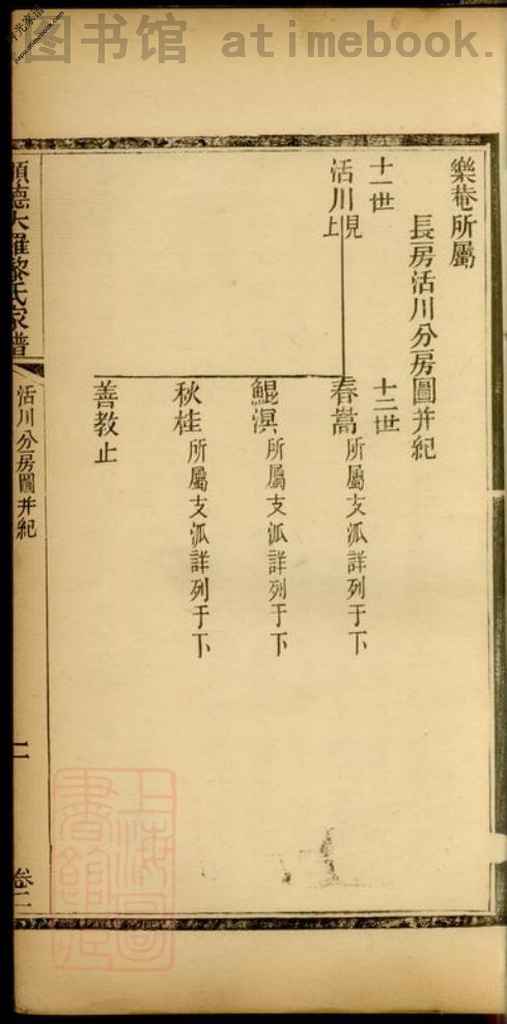 图书馆 atimebook.
樂菴所屬
長房活川分房圖并紀
十一世
十二世
活川見上
春嵩所屬支派詳列于下
鯤溟所屬支派詳列于下
秋桂所屬支派詳列于下
善教止
順德大羅黎氏家譜
活川分房圖并紀
二
卷二
上海圖書館藏